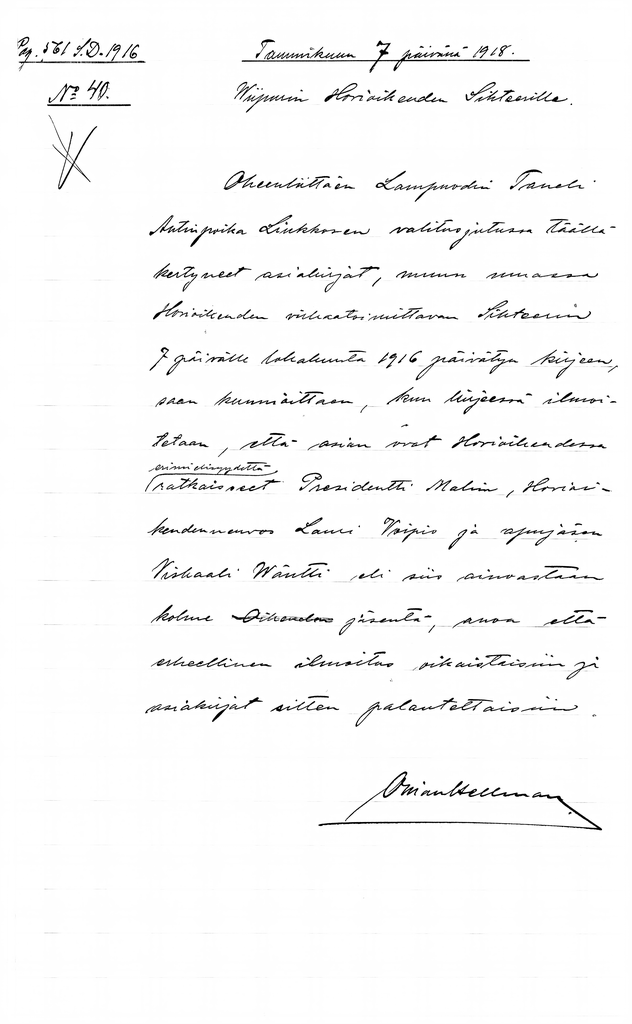 Pag. 561 S.D. 1916
Tammikuun 7 päivänä 1918.
No 40.
Wiipurin Hovioikeuden Sihteerille.
Oheenliittäen Lampuodin Taneli
Antinpoika Liukkosen valitusjutussa täällä
kertyneet asiakirjat, muun muassa
Hovioikeuden virkaatoimittavan Sihteerin
7 päivälle lokakuuta 1916 päivätyn kirjeen,
saan kunnioittaen, kun kirjeessä ilmoi-
tetaan, että asian ovat Hovioikeudessa
erimielisyydettä
ratkaisseet Presidentti Malin, Hovioi-
keudenneuvos Lauri Voipio ja apujäsen
Viskaali Wäntti eli siis ainoastaan
kolme Oikeuden jäsentä, anoa että
erheellinen ilmoitus oikaistaisiin ja
asiakirjat sitten palautettaisiin.
Hellman